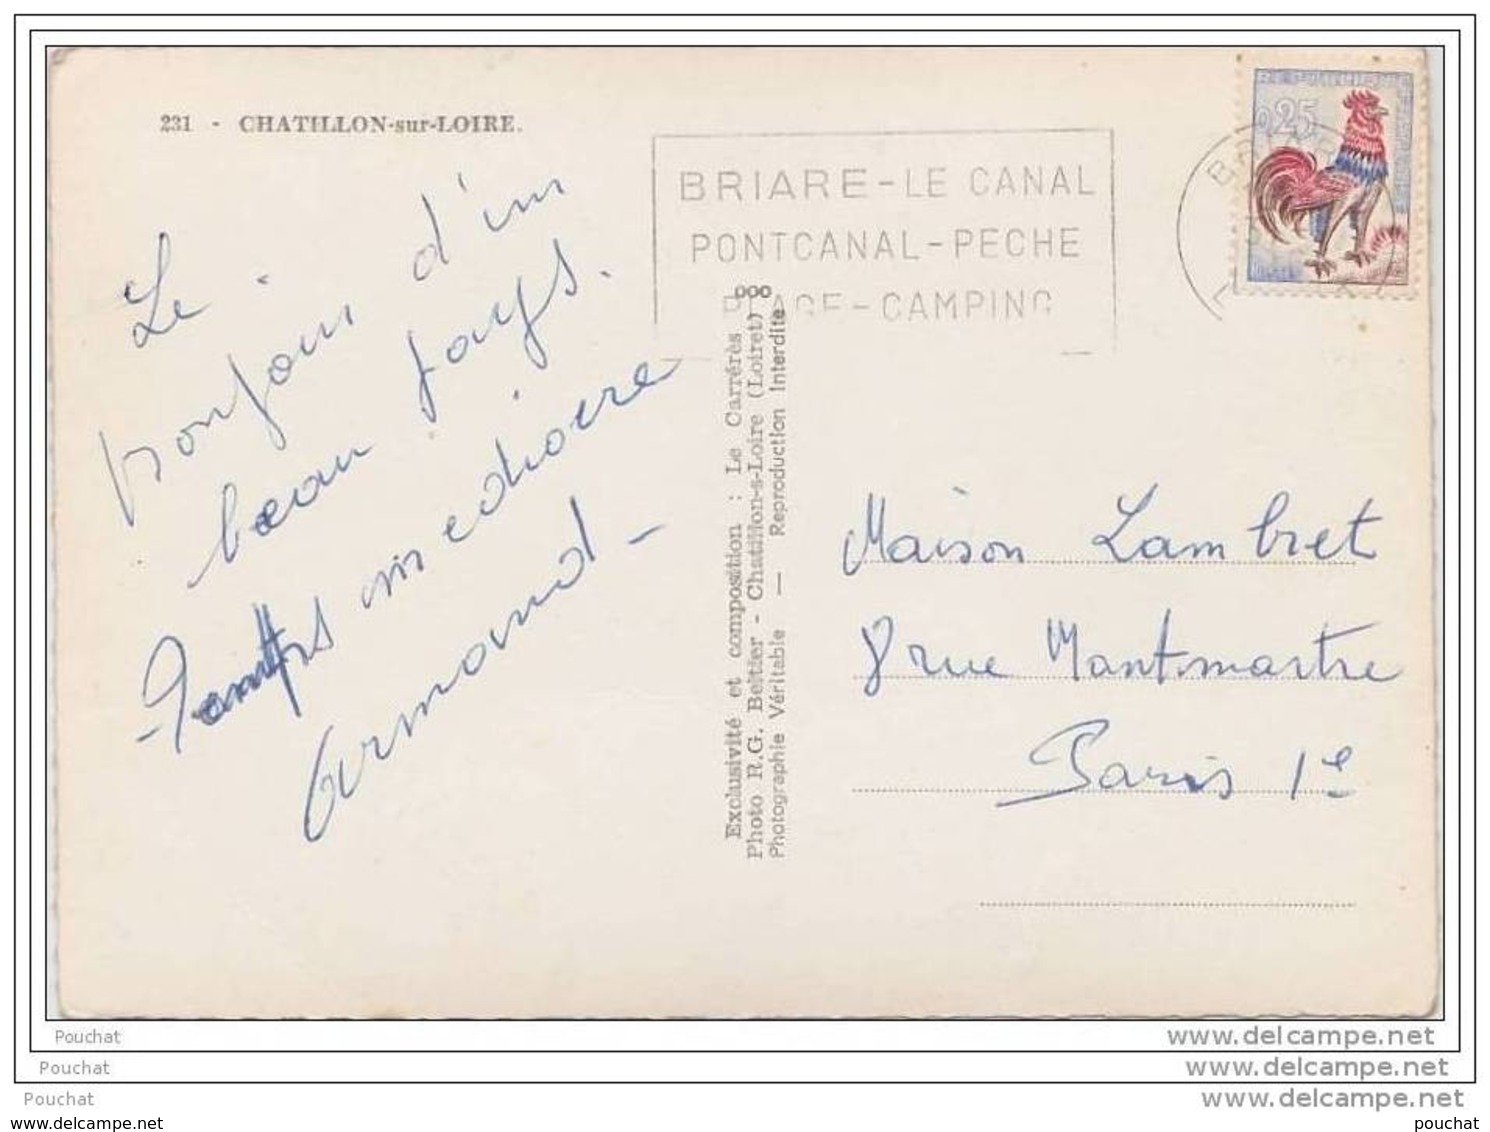 231 - CHATILLON-sur-LOIRE.
BRIARE - LE CANAL
PONTCANAL - PECHE
PLAGE - CAMPING
0,25
Le
bonjour d'un
beau pays.
- Temps médiocre
Armand -
ooo
Exclusivité et composition : Le Carrérès
Photo R.G. Beltier - Chatillon-s-Loire (Loiret)
Photographie Véritable — Reproduction Interdite
Maison Lambret
8 rue Montmartre
Paris 1e
Pouchat
www.delcampe.net
Pouchat
www.delcampe.net
Pouchat
www.delcampe.net
www.delcampe.net
pouchat